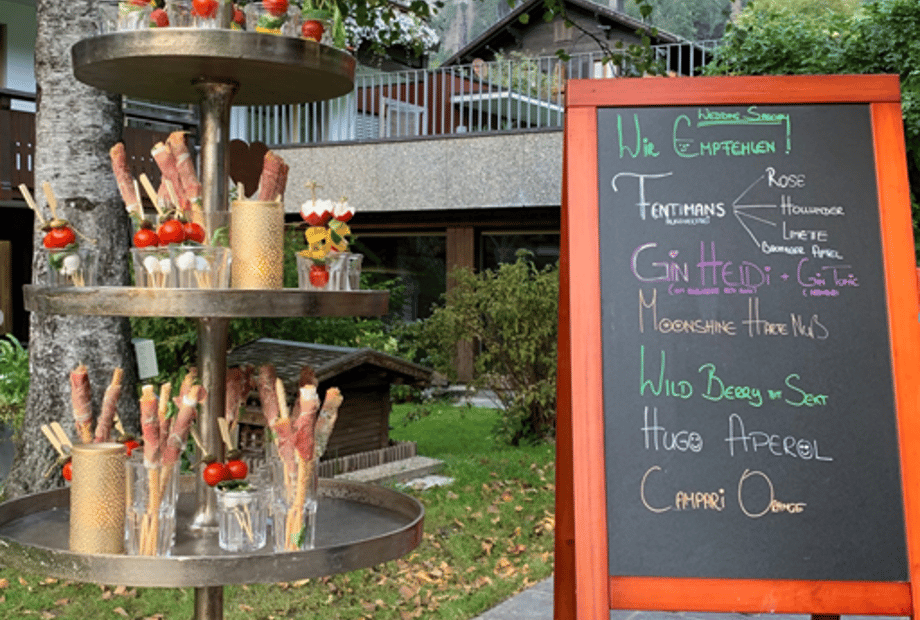 WEDDING SPECIAL
WIR EMPFEHLEN!
FENTIMANS
ROSE
HOLUNDER
LIMETTE
GIN HEIDI + GIN TONIC
MOONSHINE HARTE NUß
WILD BERRY MIT SEKT
HUGO APEROL
CAMPARI ORANGE